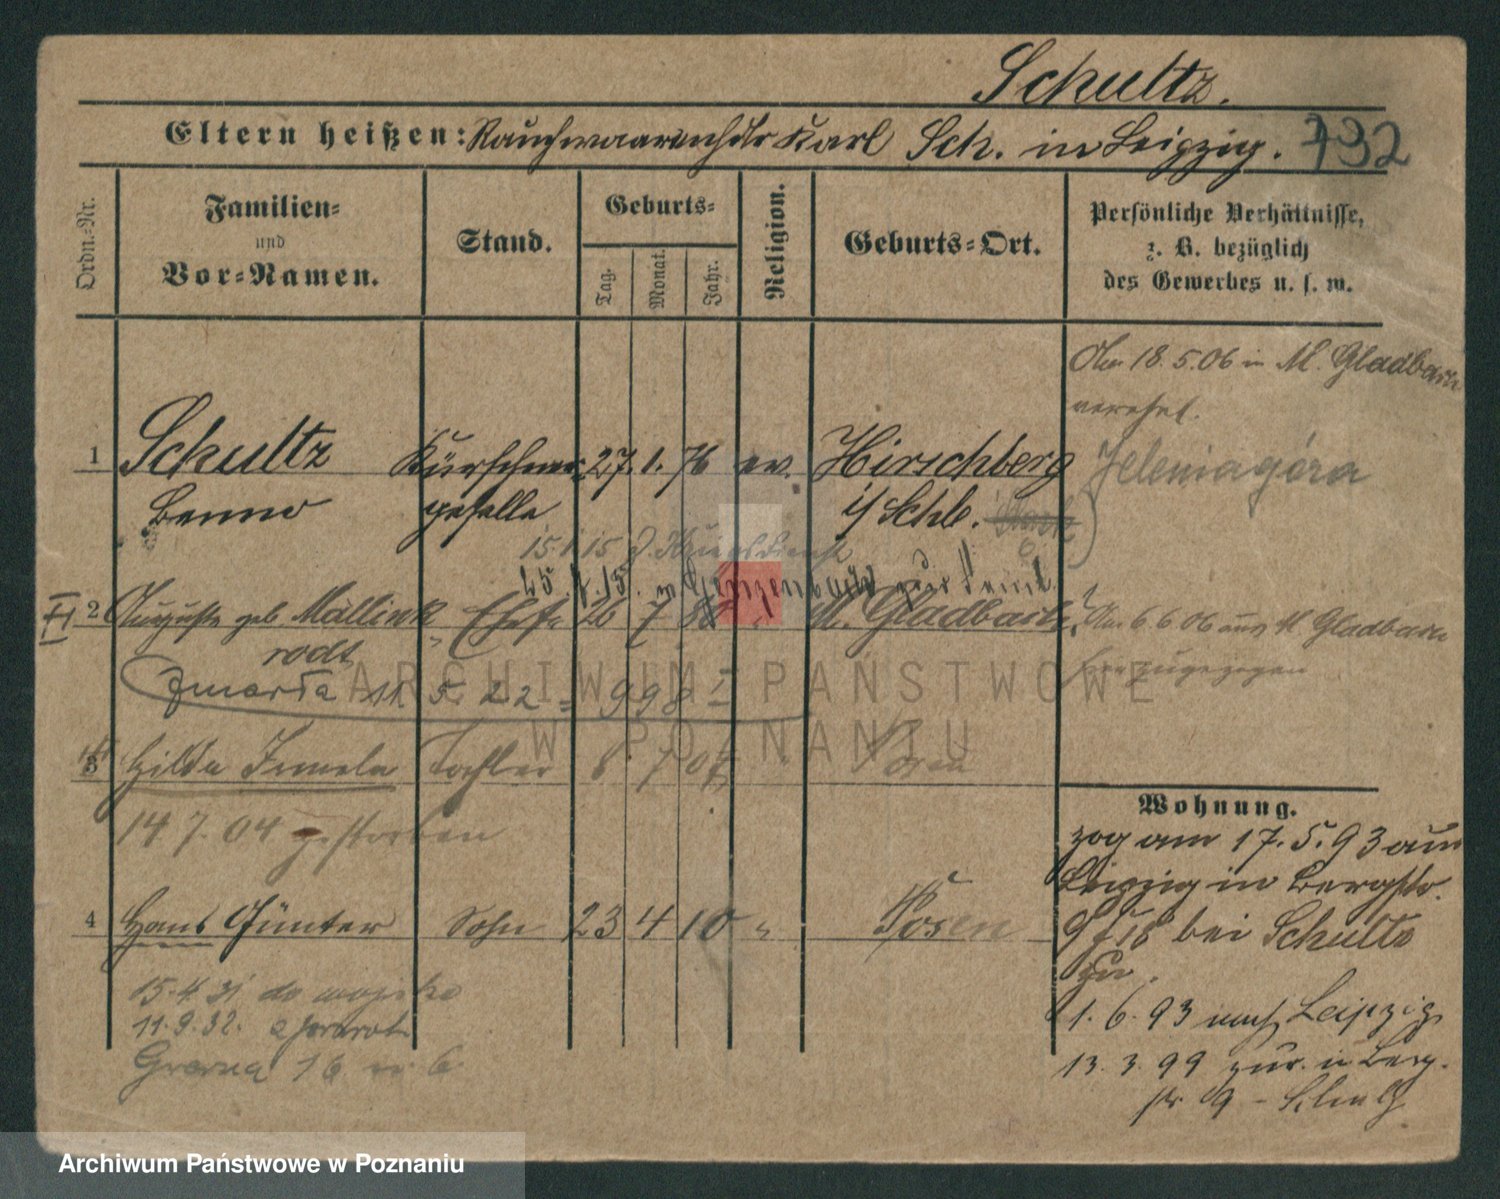 Schultz.
Eltern heißen: Rauchwaarenhdlr Karl Sch. in Leipzig. 732
Ordn.-Nr.
Familien-
und
Vor-Namen.
Stand.
Geburts-
Tag.
Monat.
Jahr.
Religion.
Geburts-Ort.
Persönliche Verhältnisse,
z. B. bezüglich
des Gewerbes u. s. w.
18.5.06 in M. Gladbach
verehel.
1 Schultz Kürschner- 27. 1. 76 ev. Hirschberg Jeleniagóra
Benno geselle i/ Schl.
15. 1. 15 z. Kriegsdienst
II 2 Auguste geb. Mallink Ehefr. 26 7 M. Gladbach 6.6.06 aus M Gladbach
rodt zugezogen
Zmarła 11. 5. 22 = 998 I
3 Hilda Tochter 7 04 Posen
14 7. 04 gestorben
4 Hans Günter Sohn 23 4 10 " Posen
15.4.31 do wojska
11.9.32. z powrot
16 m. 6
Wohnung.
zog am 17. 5. 93 aus
Leipzig in Bergstr.
9 bei Schultz
zu.
1. 6. 93 nach Leipzig
13. 3. 99 zur. in Berg-
str 9 - Schultz
ARCHIWUM PAŃSTWOWE
W POZNANIU
Archiwum Państwowe w Poznaniu